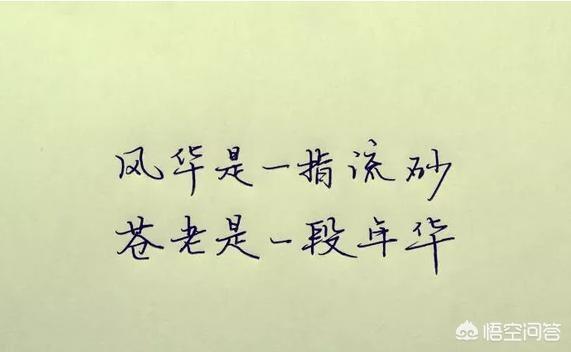 风华是一指流砂
苍老是一段年华
悟空问答